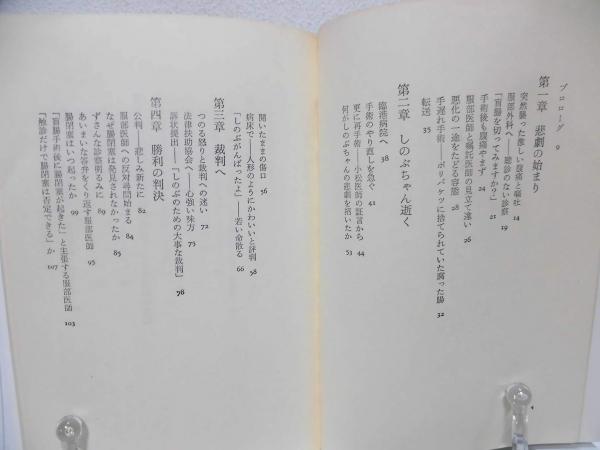 プロローグ 9
第一章 悲劇の始まり
突然襲った激しい腹痛と嘔吐 14
服部外科へ——聴診のない診察 19
「盲腸を切ってみますか?」 21
手術後も腹痛やまず 24
服部医師と嘱託医師の見立て違い 26
悪化の一途をたどる容態 28
手遅れ手術——ポリバケツに捨てられていた腐った腸 32
転送 35
第二章 しのぶちゃん逝く
臨港病院へ 38
手術のやり直しを急ぐ 41
更に再手術——小松医師の証言から 44
何がしのぶちゃんの悲劇を招いたか 53
開いたままの傷口 56
病床で——人形のようにかわいいと評判 58
「しのぶがんばったよ」——若い命散る 66
第三章 裁判へ
つのる怒りと裁判への迷い 72
法律扶助協会へ——心強い味方 75
訴状提出——「しのぶのための大事な裁判」 78
第四章 勝利の判決
公判——悲しみ新たに 82
服部医師への反対尋問始まる 84
なぜ腸閉塞は発見されなかったか 85
ずさんな診察明るみに 89
あいまいな答弁をくり返す服部医師 95
腸閉塞はいつ起ったか 99
「盲腸手術後に腸閉塞が起きた」と主張する服部医師 103
「触診だけで腸閉塞は否定できる」か 107